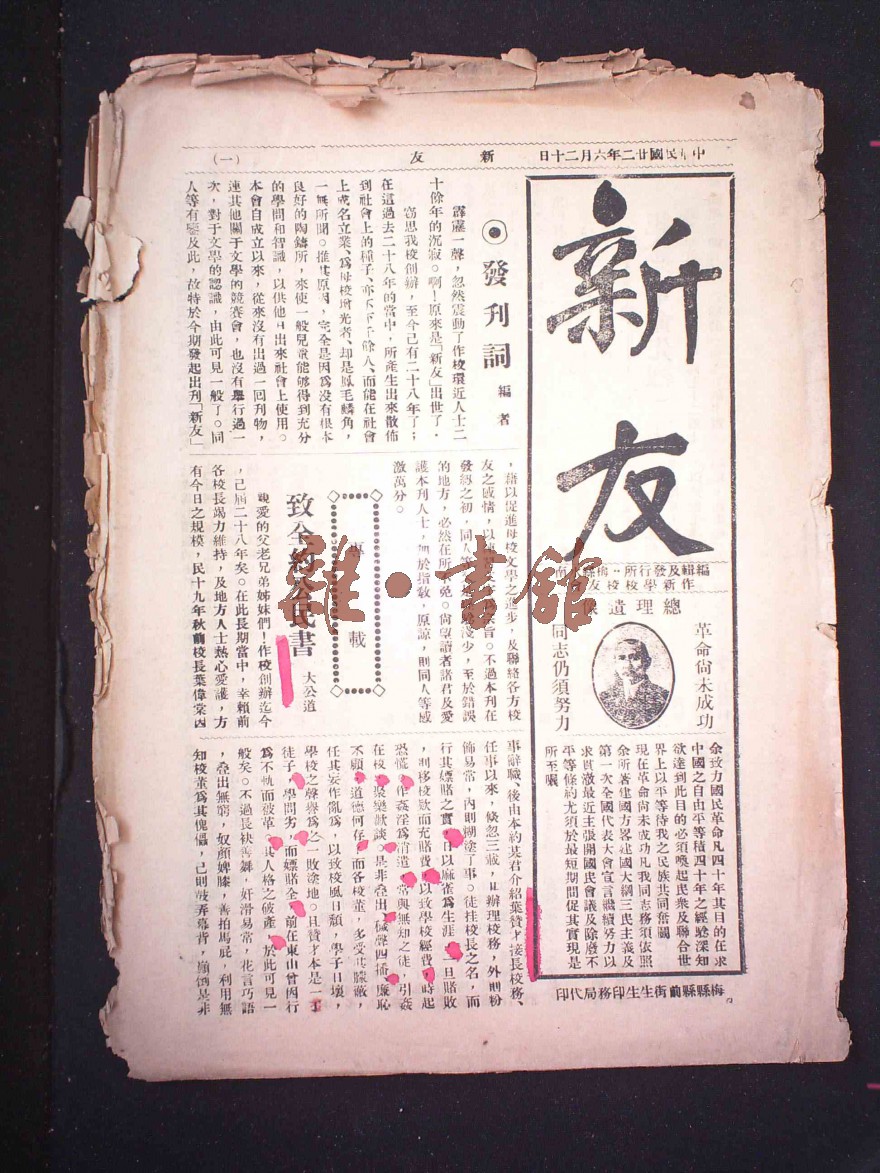 中華民國廿二年六月二十日
新友
(一)
新友
編輯及發行所：梅縣
作新學校校友
總理遺像
革命尚未成功
同志仍須努力
余致力國民革命凡四十年其目的在求
中國之自由平等積四十年之經驗深知
欲達到此目的必須喚起民衆及聯合世
界上以平等待我之民族共同奮鬬
現在革命尚未成功凡我同志務須依照
余所著建國方畧建國大綱三民主義及
第一次全國代表大會宣言繼續努力以
求貫澈最近主張開國民會議及除廢不
平等條約尤須於最短期間促其實現是
所至囑
梅縣縣前街生生印務局代印
發刊詞 編者
霹靂一聲，忽然震動了作校環近人士二
十餘年的沉寂。啊！原來是「新友」出世了。
窃思我校創辦，至今已有二十八年了；
在這過去二十八年的當中，所產生出來散佈
到社會上的種子、亦不下千餘人、而能在社會
上或名立業、爲母校增光者、却是鳳毛麟角，
一無所聞。推其原因，完全是因爲没有根本
良好的陶鑄所，來使一般兒童能够得到充分
的學問和智識，以供他日出來社會上使用。
本會自成立以來，從來沒有出過一回刊物，
連其他關于文學的競賽會，也沒有舉行過一
次，對于文學的認識，由此可見一般了。同
人等有鑒及此，故特於今期發起出刊「新友」
，藉以促進母校文學之進步，及聯絡各方校
友之感情，以 旨。不過本刊在
發軔之初，同人等 淺少，至於錯誤
的地方，必然在所 免。尚望讀者諸君及愛
護本刊人士，無於指敎，原諒，則同人等感
激萬分。
專載
致全約公民書 大公道
親愛的父老兄弟姊妹們！作校創辦迄今
，已屆二十八年矣。在此長期當中，幸賴前
各校長竭力維持，及地方人士熱心愛護，方
有今日之規模，民十九年秋前校長葉偉棠因
事辭職、後由本約吳君介紹葉贊才接長校務、
任事以來，倏忽三載，且辦理校務，外則粉
飾易常，內則糊塗丁事。徒挂校長之名，而
行其嫖賭之實，日以麻雀爲生涯，一旦賭敗
，則移校欵而充賭費，以致學校經費，時起
恐慌。作姦淫爲消遣，常與無知之徒，引姦
在校，聚樂歡談。是非叠出，穢聲四播，廉恥
不顧，道德何存，而各校董，多受其朦蔽，
任其妄作亂爲，以致校風日頹，學子日壞，
學校之聲譽爲之一敗塗地。且贊才本是一
徒子，學問劣，而嫖賭全，前在東山曾因行
爲不軌而被革。其人格之破產，於此可見一
般矣。不過長袂善舞，奸滑易常，花言巧語
，叠出無窮，奴顏婢膝，善拍馬屁，利用無
知校董爲其傀儡，己則鼓弄幕背，顛倒是非
雜·書館